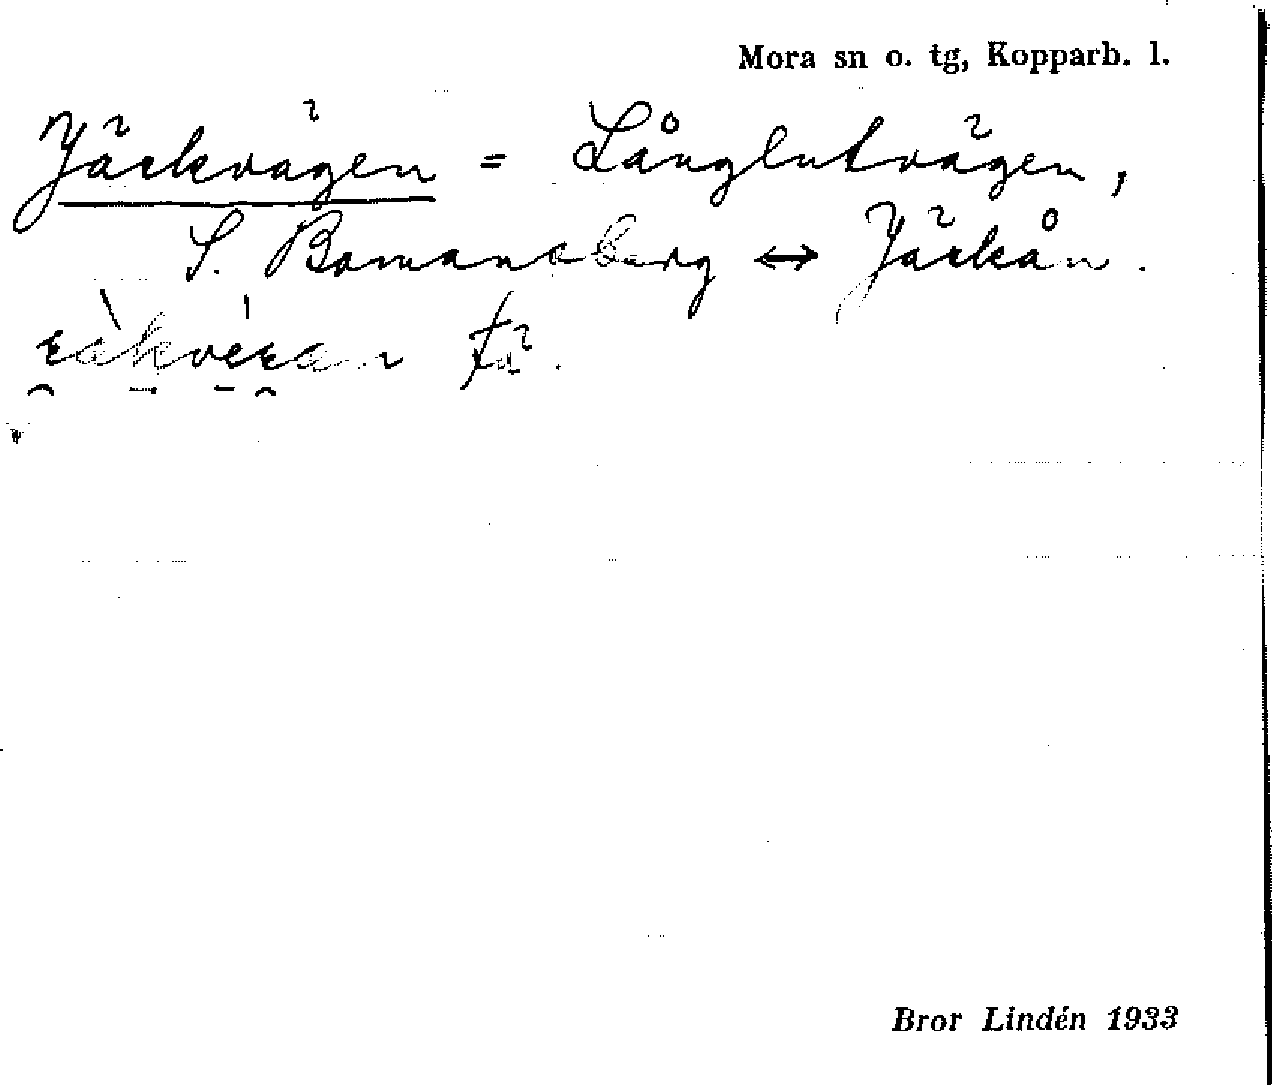 Mora sn o. tg, Kopparb. l.
Jäckvägen = Långlutvägen,
S. Bomansberg ↔ Jäckån.
Bror Lindén 1933